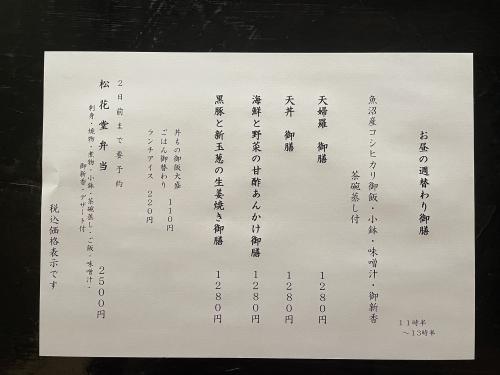 お昼の週替わり御膳
11時半
〜13時半
魚沼産コシヒカリ御飯・小鉢・味噌汁・御新香
茶碗蒸し付
天婦羅 御膳 1280円
天丼 御膳 1280円
海鮮と野菜の甘酢あんかけ御膳 1280円
黒豚と新玉葱の生姜焼き御膳 1280円
丼もの御飯大盛 110円
ごはん御替わり
ランチアイス 220円
2日前まで要予約
松花堂弁当 2500円
刺身・焼物・煮物・小鉢・茶碗蒸し・ご飯・味噌汁・
御新香・デザート付
税込価格表示です